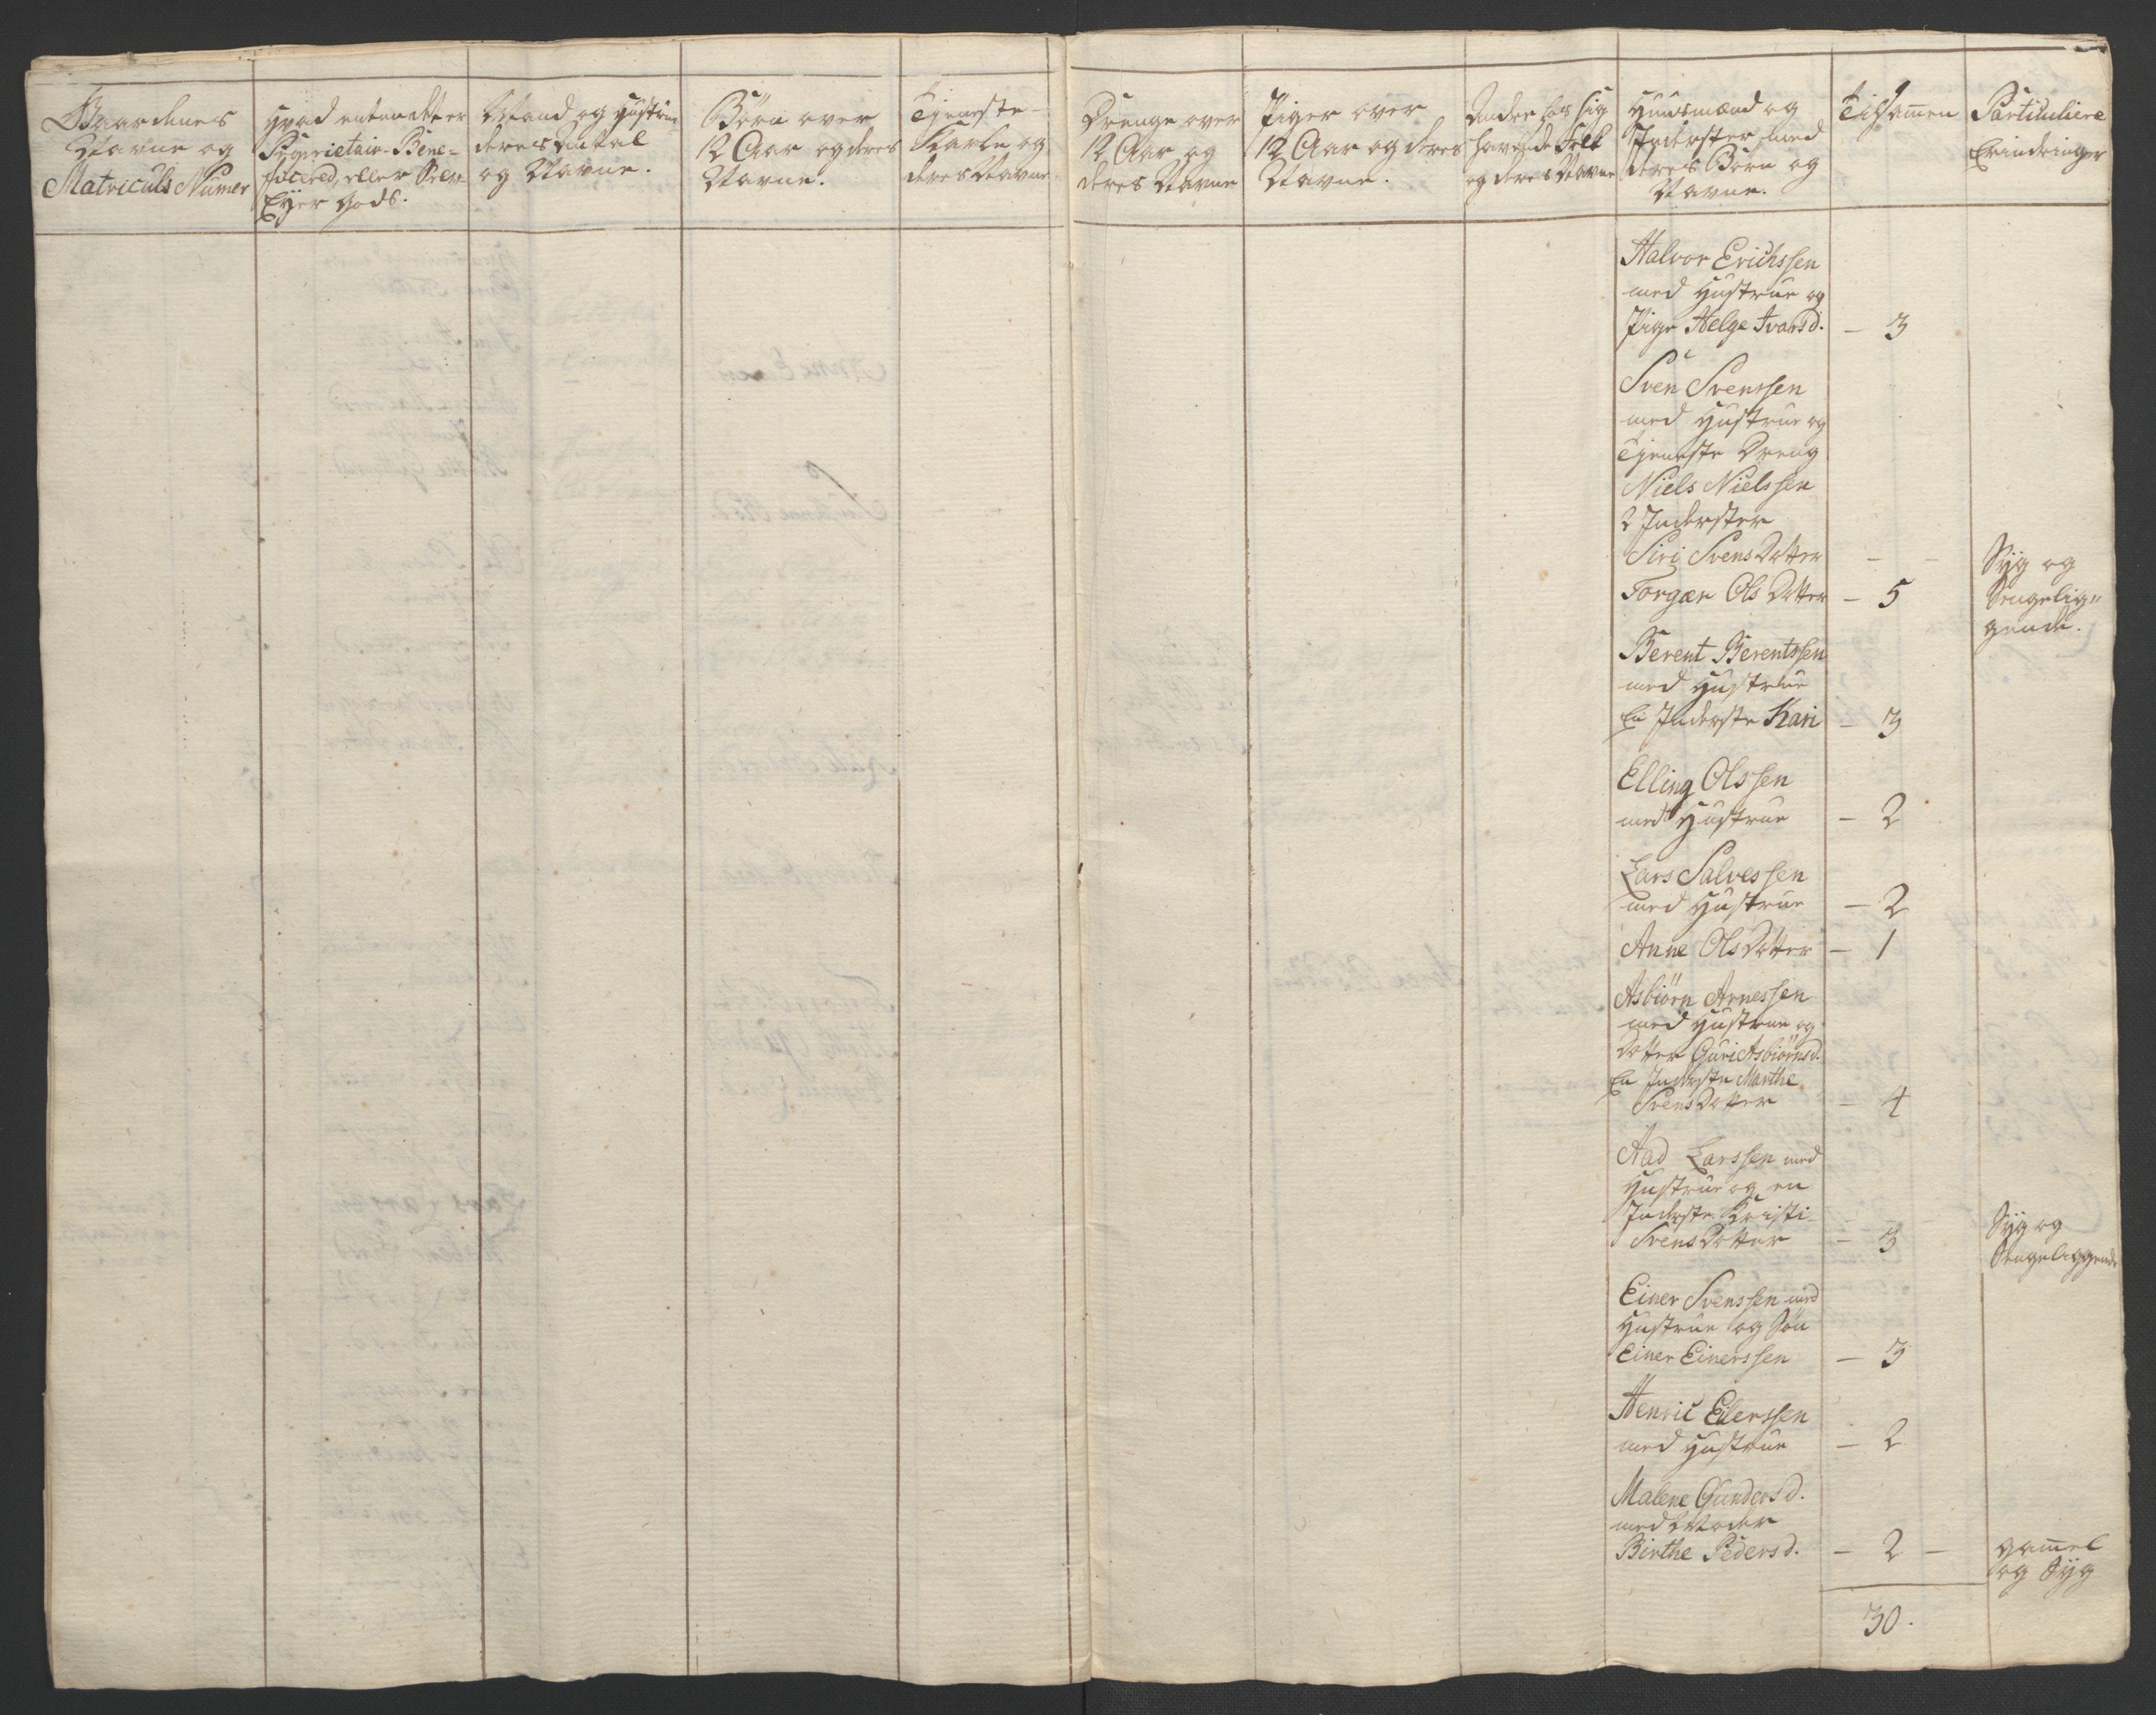 Gaardenes
Navne og
Matriculs Numer
Hvad enten det er
Proprietair-Bene-
ficered, eller Selv-
Eyer Gods.
Mand og Hustrue
deres Antal
og Navne.
Børn over
12 Aar og deres
Navne.
Tjeneste-
Karle og
deres Navne
Drenge over
12 Aar og
deres Navne
Piger over
12 Aar og deres
Navne.
Andre hos sig
havende Folk
og deres Navne
Huusmænd og
Inderster med
deres Børn og
Navne.
Tilsam̅en
Particuliere
Erindringer
Halvor Erichssen
med Hustrue og
Pige Helge Ivarsd. - 3
Sven Svenssen
med Hustrue og
Tjeneste Dreng
Niels Nielssen
2 Inderster
Siri Svens Dotter - - Syg og
Torgær Ols Dotter - 5 Sengelig-
gende.
Berent Berentssen
med Hustrue
En Inderste Kari - 3
Elling Olssen
med Hustrue - 2
Lars Salvessen
med Hustrue - 2
Anne Ols Dotter - 1
Asbiørn Arnessen
med Hustrue og
Dotter Guri Asbiørnsd.
En Inderste Marthe
Svens Dotter - 4
Aad Larssen med
Hustrue og en
Inderste Kristi - - Syg og
Svens Dotter - 3 Sengeliggende
Einer Svenssen med
Hustrue og Søn
Einer Einerssen - 3
Henric Eilerssen
med Hustrue - 2
Malene Gundersd.
med Moder
Birthe Pedersd. - 2 - gam̅el
og Syg
30.